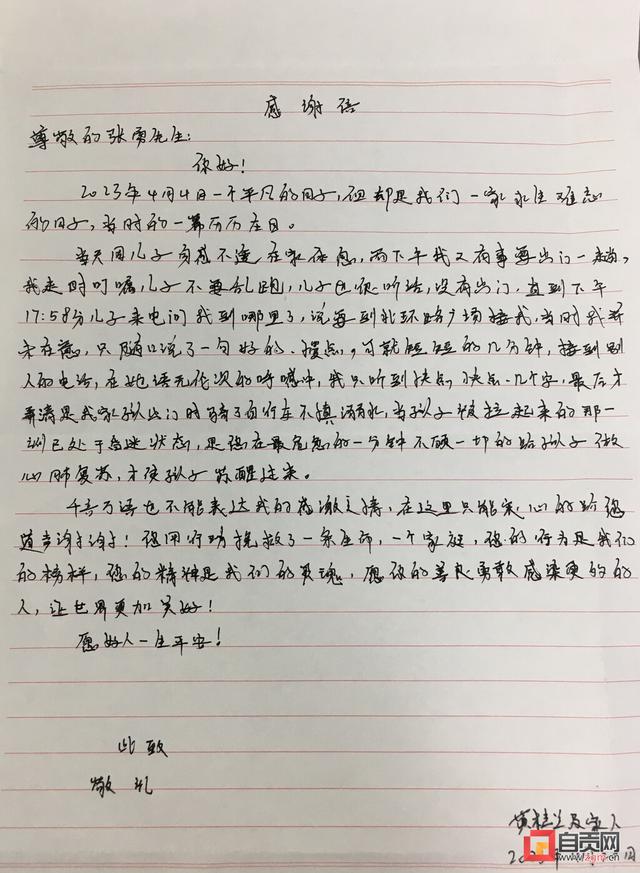 感谢信
尊敬的张勇先生:
你好!
2023年4月4日一个平凡的日子,但却是我们一家永生难忘
的日子,当时的一幕历历在目。
当天因儿子身感不适在家休息,而下午我又有事要出门一趟,
我走时叮嘱儿子不要乱跑,儿子也很听话,没有出门,直到下午
17:58分儿子来电问我到哪里了,说要到北环路广场接我,当时我并
未在意,只随口说了一句好的、慢点。可就短短的几分钟,接到别
人的电话,在她语无伦次的呼喊中,我只听到快点,快点几个字,最后才
弄清是我家孩子出门时骑了自行车不慎溺水,当孩子被拉起来的那一
刻已处于昏迷状态,是您在最危急的一分钟不顾一切的给孩子做
心肺复苏,才使孩子苏醒过来。
千言万语也不能表达我的感激之情,在这里只能衷心的给您
道声谢谢!您用行动挽救了一条生命,一个家庭,您的行为是我们
的榜样,您的精神是我们的灵魂,愿您的善良勇敢感染更多的
人,让世界更加美好!
愿好人一生平安!
此致
敬礼
及家人
自贡网